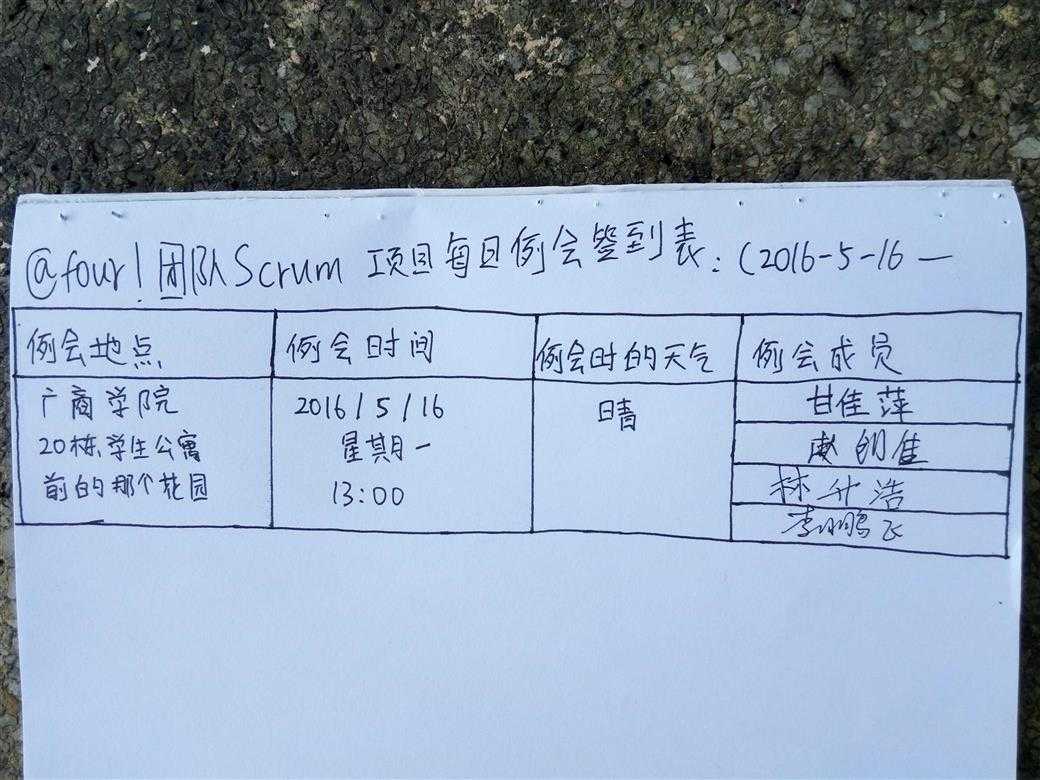 @four!团队Scrum 项目每日例会签到表:(2016-5-16 —
例会地点 例会时间 例会时的天气 例会成员
广商学院 2016/5/16 晴 甘佳萍
20栋学生公寓 星期一 佳
前的那个花园 13:00 林升浩
李鹏飞